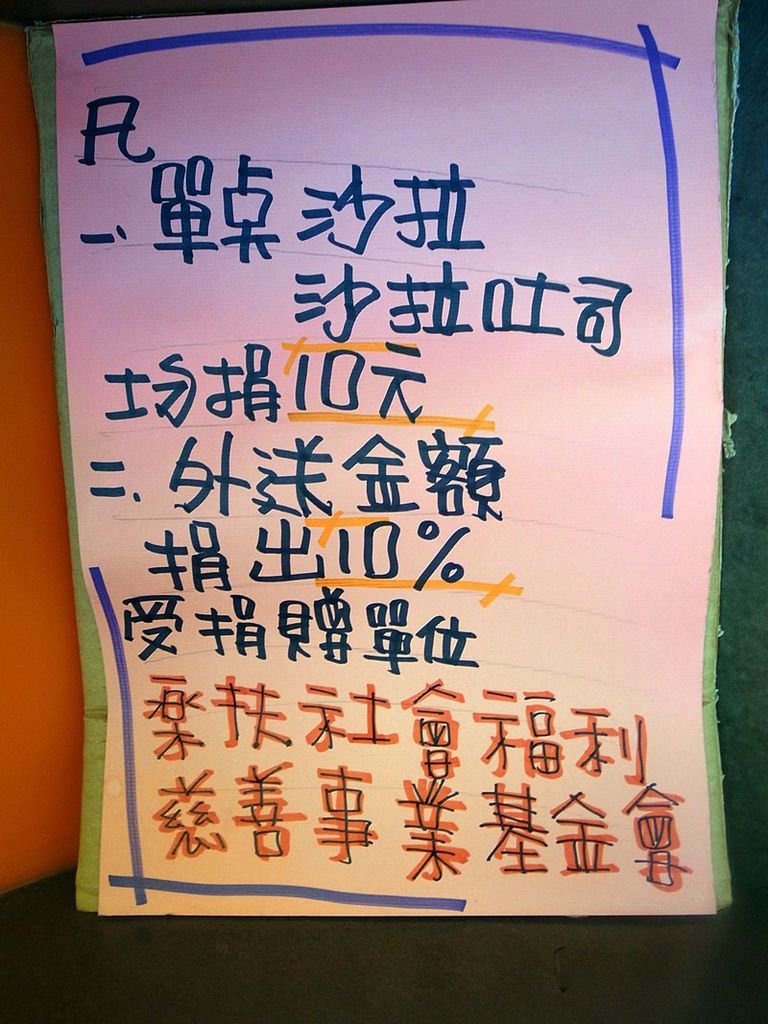 凡
一、單点沙拉
沙拉吐司
均捐10元
二、外送金額
捐出10%
受捐贈單位
樂扶社會福利
慈善事業基金會